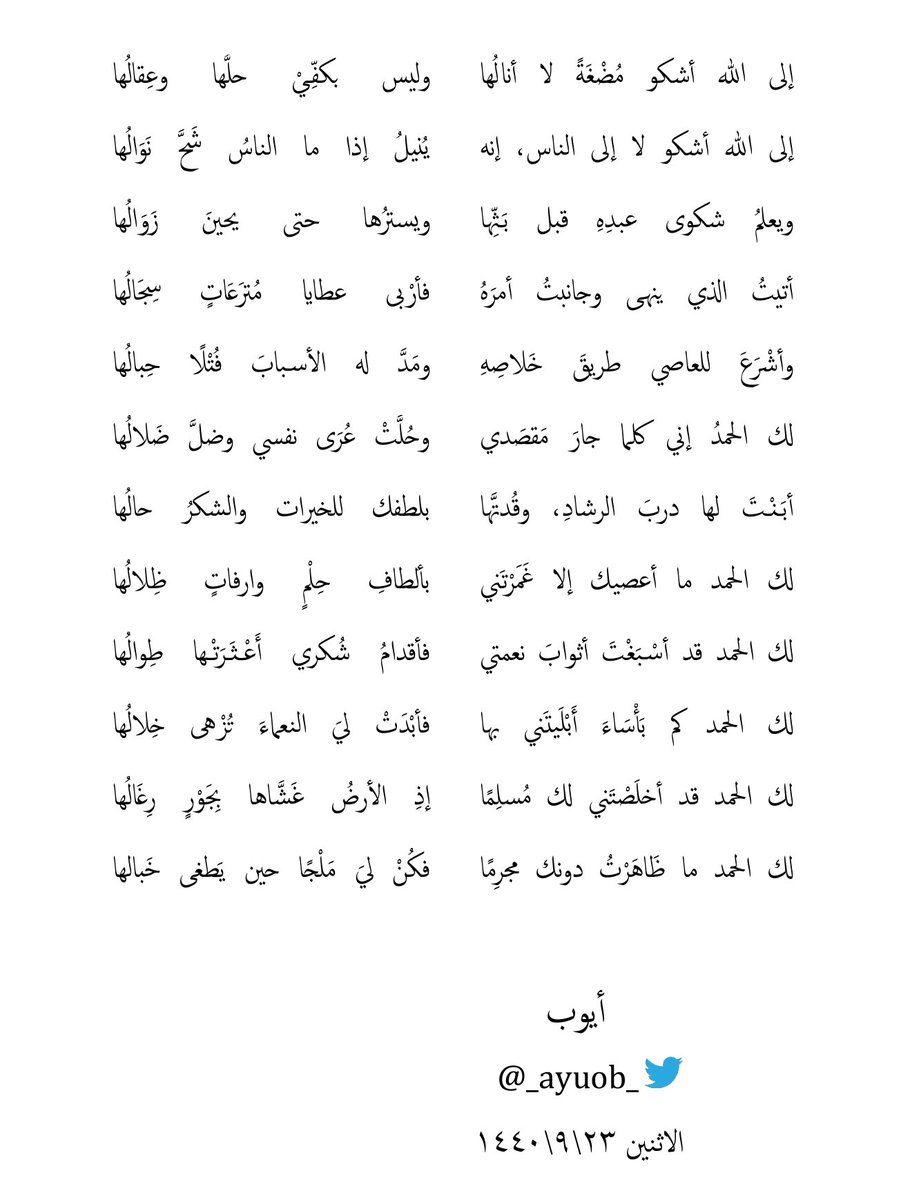 إلى الله أشكو مُضْغَةً لا أنالُها وليس بكفِّيْ حلَّها وعِقالُها
إلى الله أشكو لا إلى الناس، إنه يُنيلُ إذا ما الناسُ شَحَّ نَوَالُها
ويعلمُ شكوى عبدِهِ قبل بَثِّها ويسترُها حتى يحينَ زَوَالُها
أتيتُ الذي ينهى وجانبتُ أمرَهُ فأرْبى عطايا مُترَعَاتٍ سِجَالُها
وأشْرَعَ للعاصي طريقَ خَلاصِهِ ومَدَّ له الأسبابَ فُتْلًا حِبالُها
لك الحمدُ إني كلما جارَ مَقصَدي وحُلَّتْ عُرَى نفسي وضلَّ ضَلالُها
أبَنْتَ لها دربَ الرشادِ، وقُدتَّها بلطفك للخيرات والشكرُ حالُها
لك الحمد ما أعصيك إلا غَمَرْتَني بألطافِ حِلْمٍ وارفاتٍ ظِلالُها
لك الحمد قد أسْبَغْتَ أثوابَ نعمتي فأقدامُ شُكري أَعْثَرَتْها طِوالُها
لك الحمد كم بَأْسَاءَ أَبْلَيتَني بها فأبْدَتْ ليَ النعماءَ تُزْهى خِلالُها
لك الحمد قد أخلَصْتَني لك مُسلِمًا إذِ الأرضُ غَشَّاها بِجَوْرٍ رِغَالُها
لك الحمد ما ظَاهَرْتُ دونك مجرِمًا فكُنْ ليَ مَلْجًا حين يَطغى خَبالها
أيوب
@_ayuob_
الاثنين ٢٣\٩\١٤٤٠